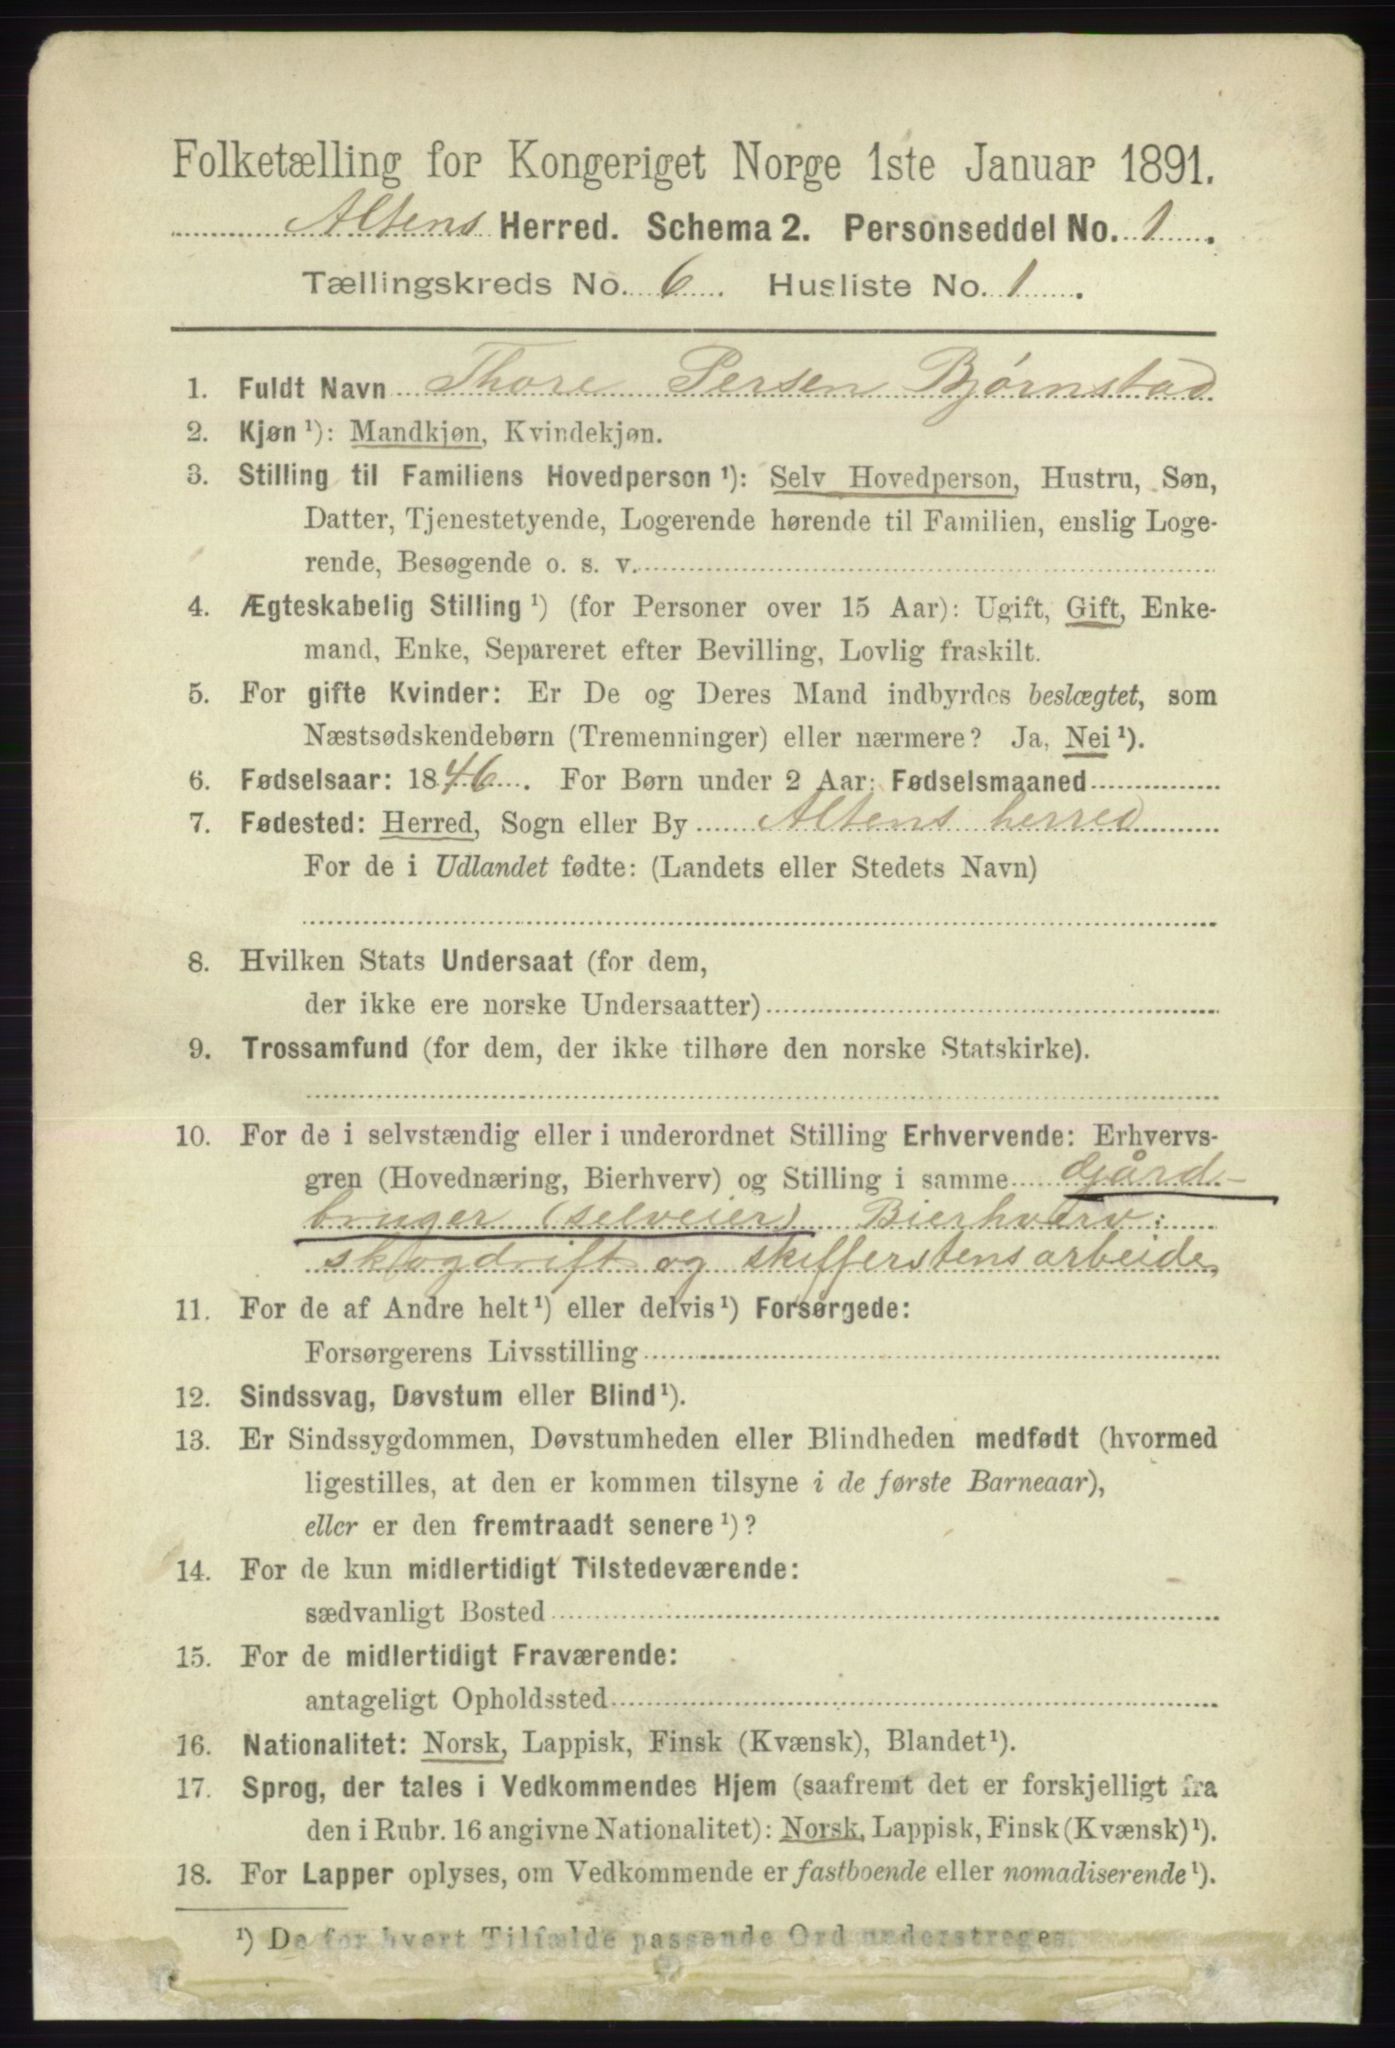 Folketælling for Kongeriget Norge 1ste Januar 1891.
Altens Herred. Schema 2. Personseddel No. 1.
Tællingskreds No. 6. Husliste No. 1.
1. Fuldt Navn Thore Persen Bjørnstad
2. Kjøn ¹): Mandkjøn, Kvindekjøn.
3. Stilling til Familiens Hovedperson ¹): Selv Hovedperson, Hustru, Søn,
Datter, Tjenestetyende, Logerende hørende til Familien, enslig Loge-
rende, Besøgende o. s. v.
4. Ægteskabelig Stilling ¹) (for Personer over 15 Aar): Ugift, Gift, Enke-
mand, Enke, Separeret efter Bevilling, Lovlig fraskilt.
5. For gifte Kvinder: Er De og Deres Mand indbyrdes beslægtet, som
Næstsødskendebørn (Tremenninger) eller nærmere? Ja, Nei ¹).
6. Fødselsaar: 1846. For Børn under 2 Aar: Fødselsmaaned
7. Fødested: Herred, Sogn eller By Altens herred
For de i Udlandet fødte: (Landets eller Stedets Navn)
8. Hvilken Stats Undersaat (for dem,
der ikke ere norske Undersaatter)
9. Trossamfund (for dem, der ikke tilhøre den norske Statskirke).
10. For de i selvstændig eller i underordnet Stilling Erhvervende: Erhvervs-
gren (Hovednæring, Bierhverv) og Stilling i samme Gård-
bruger (selveier) Bierhverv:
skogdrift og skifferstensarbeide,
11. For de af Andre helt ¹) eller delvis ¹) Forsørgede:
Forsørgerens Livsstilling
12. Sindssvag, Døvstum eller Blind ¹).
13. Er Sindssygdommen, Døvstumheden eller Blindheden medfødt (hvormed
ligestilles, at den er kommen tilsyne i de første Barneaar),
eller er den fremtraadt senere ¹)?
14. For de kun midlertidigt Tilstedeværende:
sædvanligt Bosted
15. For de midlertidigt Fraværende:
antageligt Opholdssted
16. Nationalitet: Norsk, Lappisk, Finsk (Kvænsk), Blandet ¹).
17. Sprog, der tales i Vedkommendes Hjem (saafremt det er forskjelligt fra
den i Rubr. 16 angivne Nationalitet): Norsk, Lappisk, Finsk (Kvænsk) ¹).
18. For Lapper oplyses, om Vedkommende er fastboende eller nomadiserende ¹).
¹) De for hvert Tilfælde passende Ord understreges.